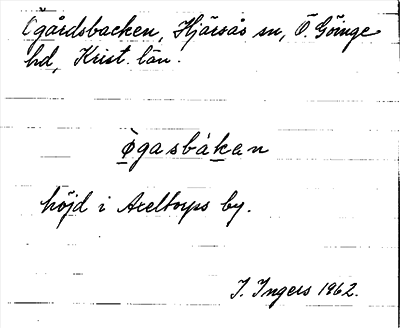 (Ögårdsbacken, Hjärsås sn, Ö. Göinge
hd, Krist. län.
øgasbákan
höjd i Axeltorps by.
I. Ingers 1962.